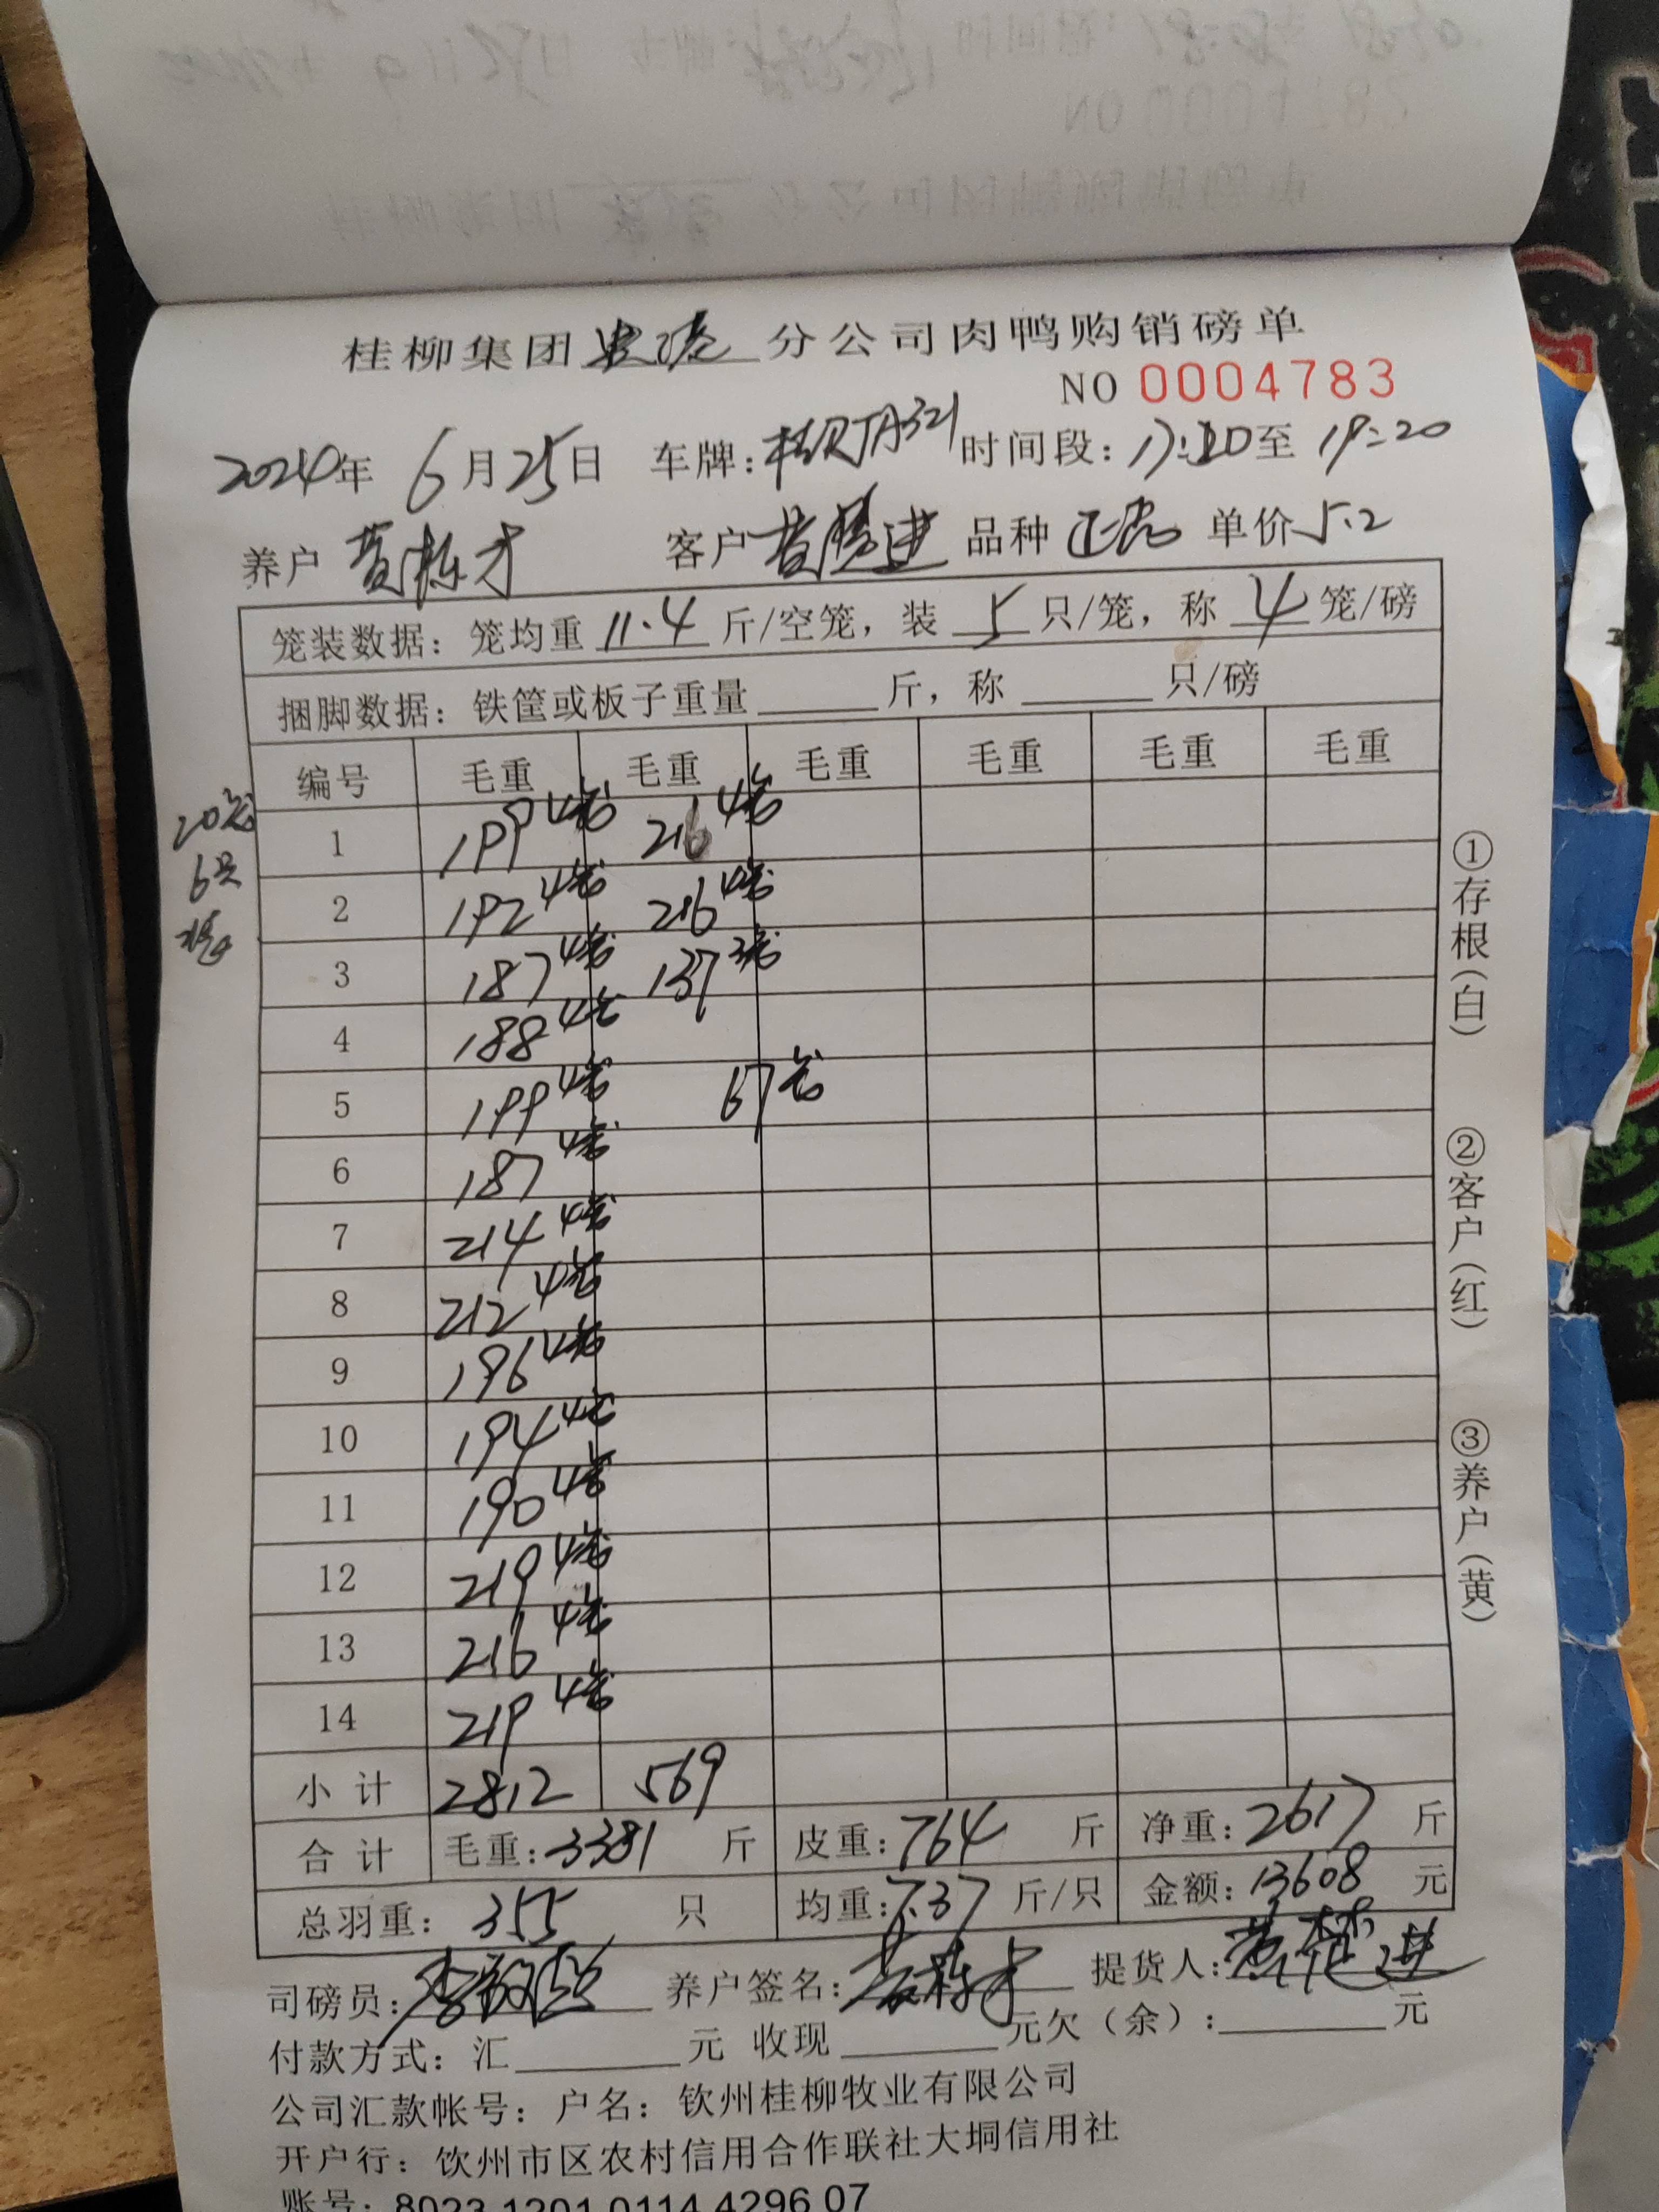 桂柳集团 分公司肉鸭购销磅单
NO 0004783
2024年 6月25日 车牌: 时间段: 17:20至 19:20
养户 黄栋才 客户 黄腾进 品种 正品 单价 5.2
笼装数据: 笼均重 11.4 斤/空笼, 装 5 只/笼, 称 4 笼/磅
捆脚数据: 铁筐或板子重量 斤, 称 只/磅
编号 毛重 毛重 毛重 毛重 毛重 毛重
20笼
6只
装
1 199 4笼 216 4笼
2 192 4笼 216 4笼
3 187 4笼 137 3笼
4 188 4笼
5 199 4笼 67笼
6 187 4笼
7 214 4笼
8 212 4笼
9 196 4笼
10 194 4笼
11 190 4笼
12 219 4笼
13 216 4笼
14 219 4笼
小计 2812 569
合计 毛重: 3381 斤 皮重: 764 斤 净重: 2617 斤
总羽重: 355 只 均重: 7.37 斤/只 金额: 13608 元
司磅员: 养户签名: 黄栋才 提货人:
付款方式: 汇 元 收现 元欠(余): 元
公司汇款帐号: 户名: 钦州桂柳牧业有限公司
开户行: 钦州市区农村信用合作联社大垌信用社
账号: 8023 1201 0114 4296 07
①存根(白)
②客户(红)
③养户(黄)